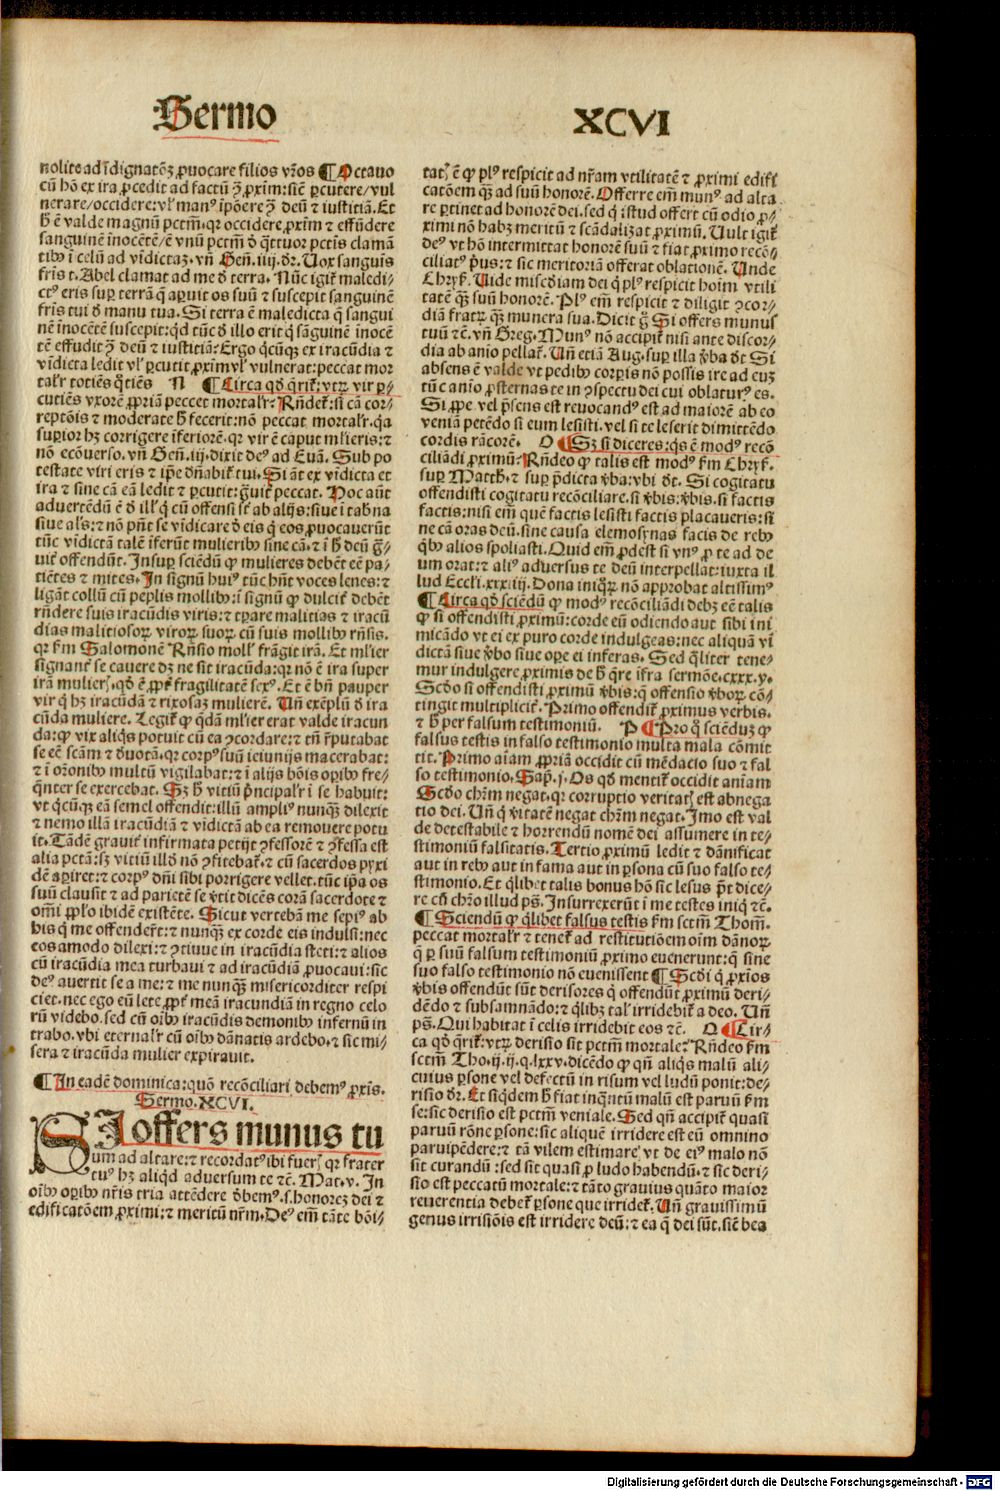 Sermo XCVI
nolite ad īdignatōȝ ꝓuocare filios vr̄os ¶ Octauo
cū hō ex ira ꝓcedit ad factū ꝯ̄ ꝓxim̄: sic̄ ꝑcutere/vul
nerare/occidere: vl̓ manꝰ īpōere ꝯ̄ deū ⁊ iustitiā. Et
h̄ ē valde magnū pctm̄. qr occidere ꝓxim̄ ⁊ effūdere
sanguinē inocētē/ē vnū pctm̄ d̄ q̄ttuor pctis clamā
tibꝰ ī celū ad vīdictaȝ. vn̄ Gen̄. iiij. dr̄. Uox sanguis
fris t. Abel clamat ad me d̄ terra. Nūc igit̄ maledi⸗
ctꝰ eris suꝑ terrā q̄ aꝑuit os suū ⁊ suscepit sanguinē
fris tui d̄ manu tua. Si terra ē maledicta q̄ sangui
nē inocētē suscepit: qd̓ tūc d̄ illo erit q̓ sāguinē inocē
tē effudit ꝯ̄ deū ⁊ iustitiā? Ergo q̓cūqȝ ex iracūdia ⁊
vīdicta ledit vl̓ ꝑcutit ꝓxim̄ vl̓ vulnerat: peccat mor
tal̓r totiēs q̄tiēs N ¶ Circa qd̓ q̄rit̄: vtꝝ vir ꝑ⸗
cutiēs vxorē ꝓpriā peccet mortal̓r? Rn̄det̄: si cā cor⸗
reptōis ⁊ moderate h̄ fecerit: nō peccat mortal̓r. q̓a
suꝑior hȝ corrigere īferiorē. qr vir ē caput ml̓ieris: ⁊
nō ecōuerso. vn̄ Gen̄. iij. dixit deꝰ ad Euā. Sub po
testate viri eris ⁊ ip̄e dn̄abit̄ tui. Si āt ex vīdicta et
ira ⁊ sine cā eā ledit ⁊ ꝑcutit: g̓uit̓ peccat. Hoc aūt
aduertēdū ē d̄ ill̓ q̓ cū offensi st̄ ab alijs: siue ī tab̄na
siue al̓s: ⁊ nō pn̄t se vīdicare d̄ eis q̓ eos ꝓuocauerūt
tūc vīdictā talē īferūt mulieribꝰ sine cā. ⁊ ī h̄ deū g̓⸗
uit̓ offendūt. Insuꝑ sciēdū ꝙ mulieres debēt eē pa⸗
tiētes ⁊ mites. In signū huiꝰ tūc hn̄t voces lenes: ⁊
ligāt collū cū peplis mollibꝰ: ī signū ꝙ dulcit̓ debēt
rn̄dere suis iracūdis viris: ⁊ tꝑare malitias ⁊ iracū
dias malitiosoꝝ viroꝝ suoꝝ cū suis mollibꝰ rn̄sis.
qr fm̄ Salomonē Rn̄sio moll̓ frāgit irā. Et ml̓ier
signant̓ se cauere dȝ ne sit iracūda: qr nō ē ira super
irā mulier̓. qd̓ ē ꝓpt̓ fragilitatē sexꝰ. Et ē bn̄ pauper
vir q̓ hȝ iracūdā ⁊ rixosaȝ mulierē. Un̄ exēplū d̄ ira
cūda muliere. Legit̄ ꝙ q̄dā ml̓ier erat valde iracun
da: ꝙ vix aliq̓s potuit cū ea ꝯcordare: ⁊ tn̄ r̄putabat
se eē scām ⁊ d̓uotā. qr corpꝰ suū ieiunijs macerabat:
⁊ ī or̄onibꝰ multū vigilabat: ⁊ ī alijs bōis oꝑibꝰ fre⸗
q̄nter se exercebat. Sȝ h̄ vitiū p̄ncipal̓r ī se habuit:
vt q̓cūqȝ eā semel offendit: illū ampliꝰ nunqȝ̄ dilexit
⁊ nemo illā iracūdiā ⁊ vīdictā ab ea remouere potu
it. Tādē grauit̓ infirmata petijt ꝯfessorē ⁊ ꝯfessa est
alia pctā: sȝ vitiū illd̓ nō ꝯfitebat̄. ⁊ cū sacerdos pyxi
dē aꝑiret: ⁊ corpꝰ dn̄i sibi porrigere vellet. tūc ip̄a os
suū clausit ⁊ ad parietē se v̓tit dicēs corā sacerdote ⁊
om̄i ꝓplo ibidē existēte. Sicut vertebā me sepiꝰ ab
his q̓ me offender̄t: ⁊ nunqȝ̄ ex corde eis indulsi: nec
eos amodo dilexi: ⁊ ꝯtinue in iracūdia steti: ⁊ alios
cū iracūdia mea turbaui ⁊ ad iracūdiā ꝓuocaui: sic
deꝰ auertit se a me: ⁊ me nunqȝ̄ misericorditer respi
ciet. nec ego eū lete ꝓpt̓ meā iracundiā in regno celo
rū videbo. sed cū oībꝰ iracūdis demonibꝰ infernū in
trabo. vbi eternal̓r cū oībꝰ dānatis ardebo. ⁊ sic mi⸗
sera ⁊ iracūda mulier expirauit.
¶ In eadē dominica: quō recōciliari debemꝰ ꝓxīs.
Sermo. XCVI.
SI offers munus tu
um ad altare: ⁊ recordatꝰ ibi fuer̓ qr frater
tuꝰ hȝ aliq̓d aduersum te ⁊c̄. Mat. v. In
oībꝰ oꝑibꝰ nr̄is tria attēdere d̓bemꝰ. s. honoreȝ dei ⁊
edificatōem ꝓximi: ⁊ meritū nr̄m. Deꝰ em̄ tāte bōi⸗
tat̓ ē ꝙ plꝰ respicit ad nr̄am vtilitatē ⁊ ꝓximi edifi
catōem qȝ̄ ad suū honorē. Offerre em̄ munꝰ ad alta
re ꝑtinet ad honorē dei. sed q̓ istud offert cū odio ꝓ⸗
ximi nō habȝ meritū ⁊ scādalizat ꝓximū. Uult igit̄
deꝰ vt hō intermittat honorē suū ⁊ fiat ꝓximo recō⸗
ciliatꝰ p̓us: ⁊ sic meritoriā offerat oblationē. Unde
Chrys̄. Uide misc̄diam dei q̓ plꝰ respicit hoīm vtili
tatē qȝ̄ suū honorē. Plꝰ em̄ respicit ⁊ diligit ꝯcor⸗
diā fratꝝ qȝ̄ munera sua. Dicit g̓ Si offers munus
tuū ⁊c̄. vn̄ Greg. Munꝰ nō accipit̄ nisi ante discor⸗
dia ab anio pellat̄. Un̄ etiā Aug. suꝑ illa v̓ba d̓t Si
absens ē valde vt pedibꝰ corꝑis nō possis ire ad euȝ
tūc anio ꝓsternas te in ꝯspectu dei cui oblaturꝰ es.
Si ꝓpe vel p̄sens est reuocandꝰ est ad maiorē ab eo
veniā petēdo si eum lesisti. vel si te leserit dimittēdo
cordis rācorē. O ¶ Sȝ si diceres: q̓s ē modꝰ recō
ciliādi ꝓximū? Rn̄deo ꝙ talis est modꝰ fm̄ Chrys̄.
suꝑ Matth̄. ⁊ suꝑ p̄dicta v̓ba: vbi d̓t. Si cogitatu
offendisti cogitatu recōciliare. si v̓bis: v̓bis. si factis
factis: nisi em̄ quē factis lesisti factis placaueris: si⸗
ne cā oras deū. sine causa elemosynas facis de rebꝰ
q̓bꝰ alios spoliasti. Quid em̄ ꝓdest si vnꝰ ꝓ te ad de
um orat: ⁊ aliꝰ aduersus te deū interpellat: iuxta il
lud Eccl̓i. xxxiiij. Dona iniq̓ꝝ nō approbat altissimꝰ
¶ Circa qd̓ sciēdū ꝙ modꝰ recōciliādi debȝ eē talis
ꝙ si offendisti ꝓximū: corde eū odiendo aut sibi ini
micādo vt ei ex puro corde indulgeas: nec aliquā vī
dictā siue v̓bo siue oꝑe ei inferas. Sed q̄liter tene⸗
mur indulgere ꝓximis de h̄ q̄re īfra sermōe. cxxx. y.
Scd̓o si offendisti ꝓximū v̓bis: q̓ offensio v̓boꝝ cō⸗
tingit multiplicit̓. Primo offendit̄ ꝓximus verbis.
⁊ h̄ per falsum testimoniū. P ¶ Pro q̓ sciēduȝ ꝙ
falsus testis in falso testimonio multa mala cōmit
tit. Primo aīam ꝓpriā occidit cū mēdacio suo ⁊ fal
so testimonio. Sap̄. j. Os qd̓ mentit̄ occidit aniam
Scd̓o chr̄m negat. qr corruptio veritat̓ est abnega
tio dei. Un̄ q̓ v̓itatē negat chr̄m negat. Imo est val
de detestabile ⁊ horrendū nomē dei assumere in te⸗
stimoniū falsitatis. Tertio ꝓximū ledit ⁊ dānificat
aut in rebꝰ aut in fama aut in ꝑsona cū suo falso te⸗
stimonio. Et q̓libet talis bonus hō sic lesus p̄t dice⸗
re cū chr̄o illud ps̄. Insurrexerūt ī me testes iniq̓ ⁊c̄.
¶ Sciendū ꝙ q̓libet falsus testis fm̄ sctm̄ Thom̄.
peccat mortal̓r ⁊ tenet̄ ad restitutiōem oīm dānoꝝ
q̄ ꝑ suū falsum testimoniū ꝓximo euenerunt: q̄ sine
suo falso testimonio nō euenissent ¶ Scd̓i q̓ ꝓxīos
v̓bis offendūt sūt derisores q̓ offendūt ꝓximū deri⸗
dēdo ⁊ subsannādo: ⁊ q̓libȝ tal̓ irridebit̄ a deo. Un̄
ps̄. Qui habitat ī celis irridebit eos ⁊c̄. Q ¶ Cir⸗
ca qd̓ q̄rit̄: vtꝝ derisio sit pctm̄ mortale? Rn̄deo fm̄
sctm̄ Tho. ij. ij. q. lxxv. dicēdo ꝙ qn̄ aliq̓s malū ali⸗
cuius ꝑsone vel defectū in risum vel ludū ponit: de⸗
risio dr̄. Et siq̓dem h̄ fiat inq̄ntū malū est paruū fm̄
se: sic derisio est pctm̄ veniale. Sed qn̄ accipit̄ quasi
paruū rōne ꝑsone: sic aliquē irridere est eū omnino
paruipēdere: ⁊ tā vilem estimare vt de eiꝰ malo nō
sit curandū: sed sit quasi ꝓ ludo habendū. ⁊ sic deri⸗
sio est peccatū mortale: ⁊ tāto grauius quāto maior
reuerentia debet̄ ꝑsone que irridet̄. Un̄ grauissimū
genus irrisiōis est irridere deū: ⁊ ea q̄ dei sūt. sic̄ bea
Digitalisierung gefördert durch die Deutsche Forschungsgemeinschaft - DFG